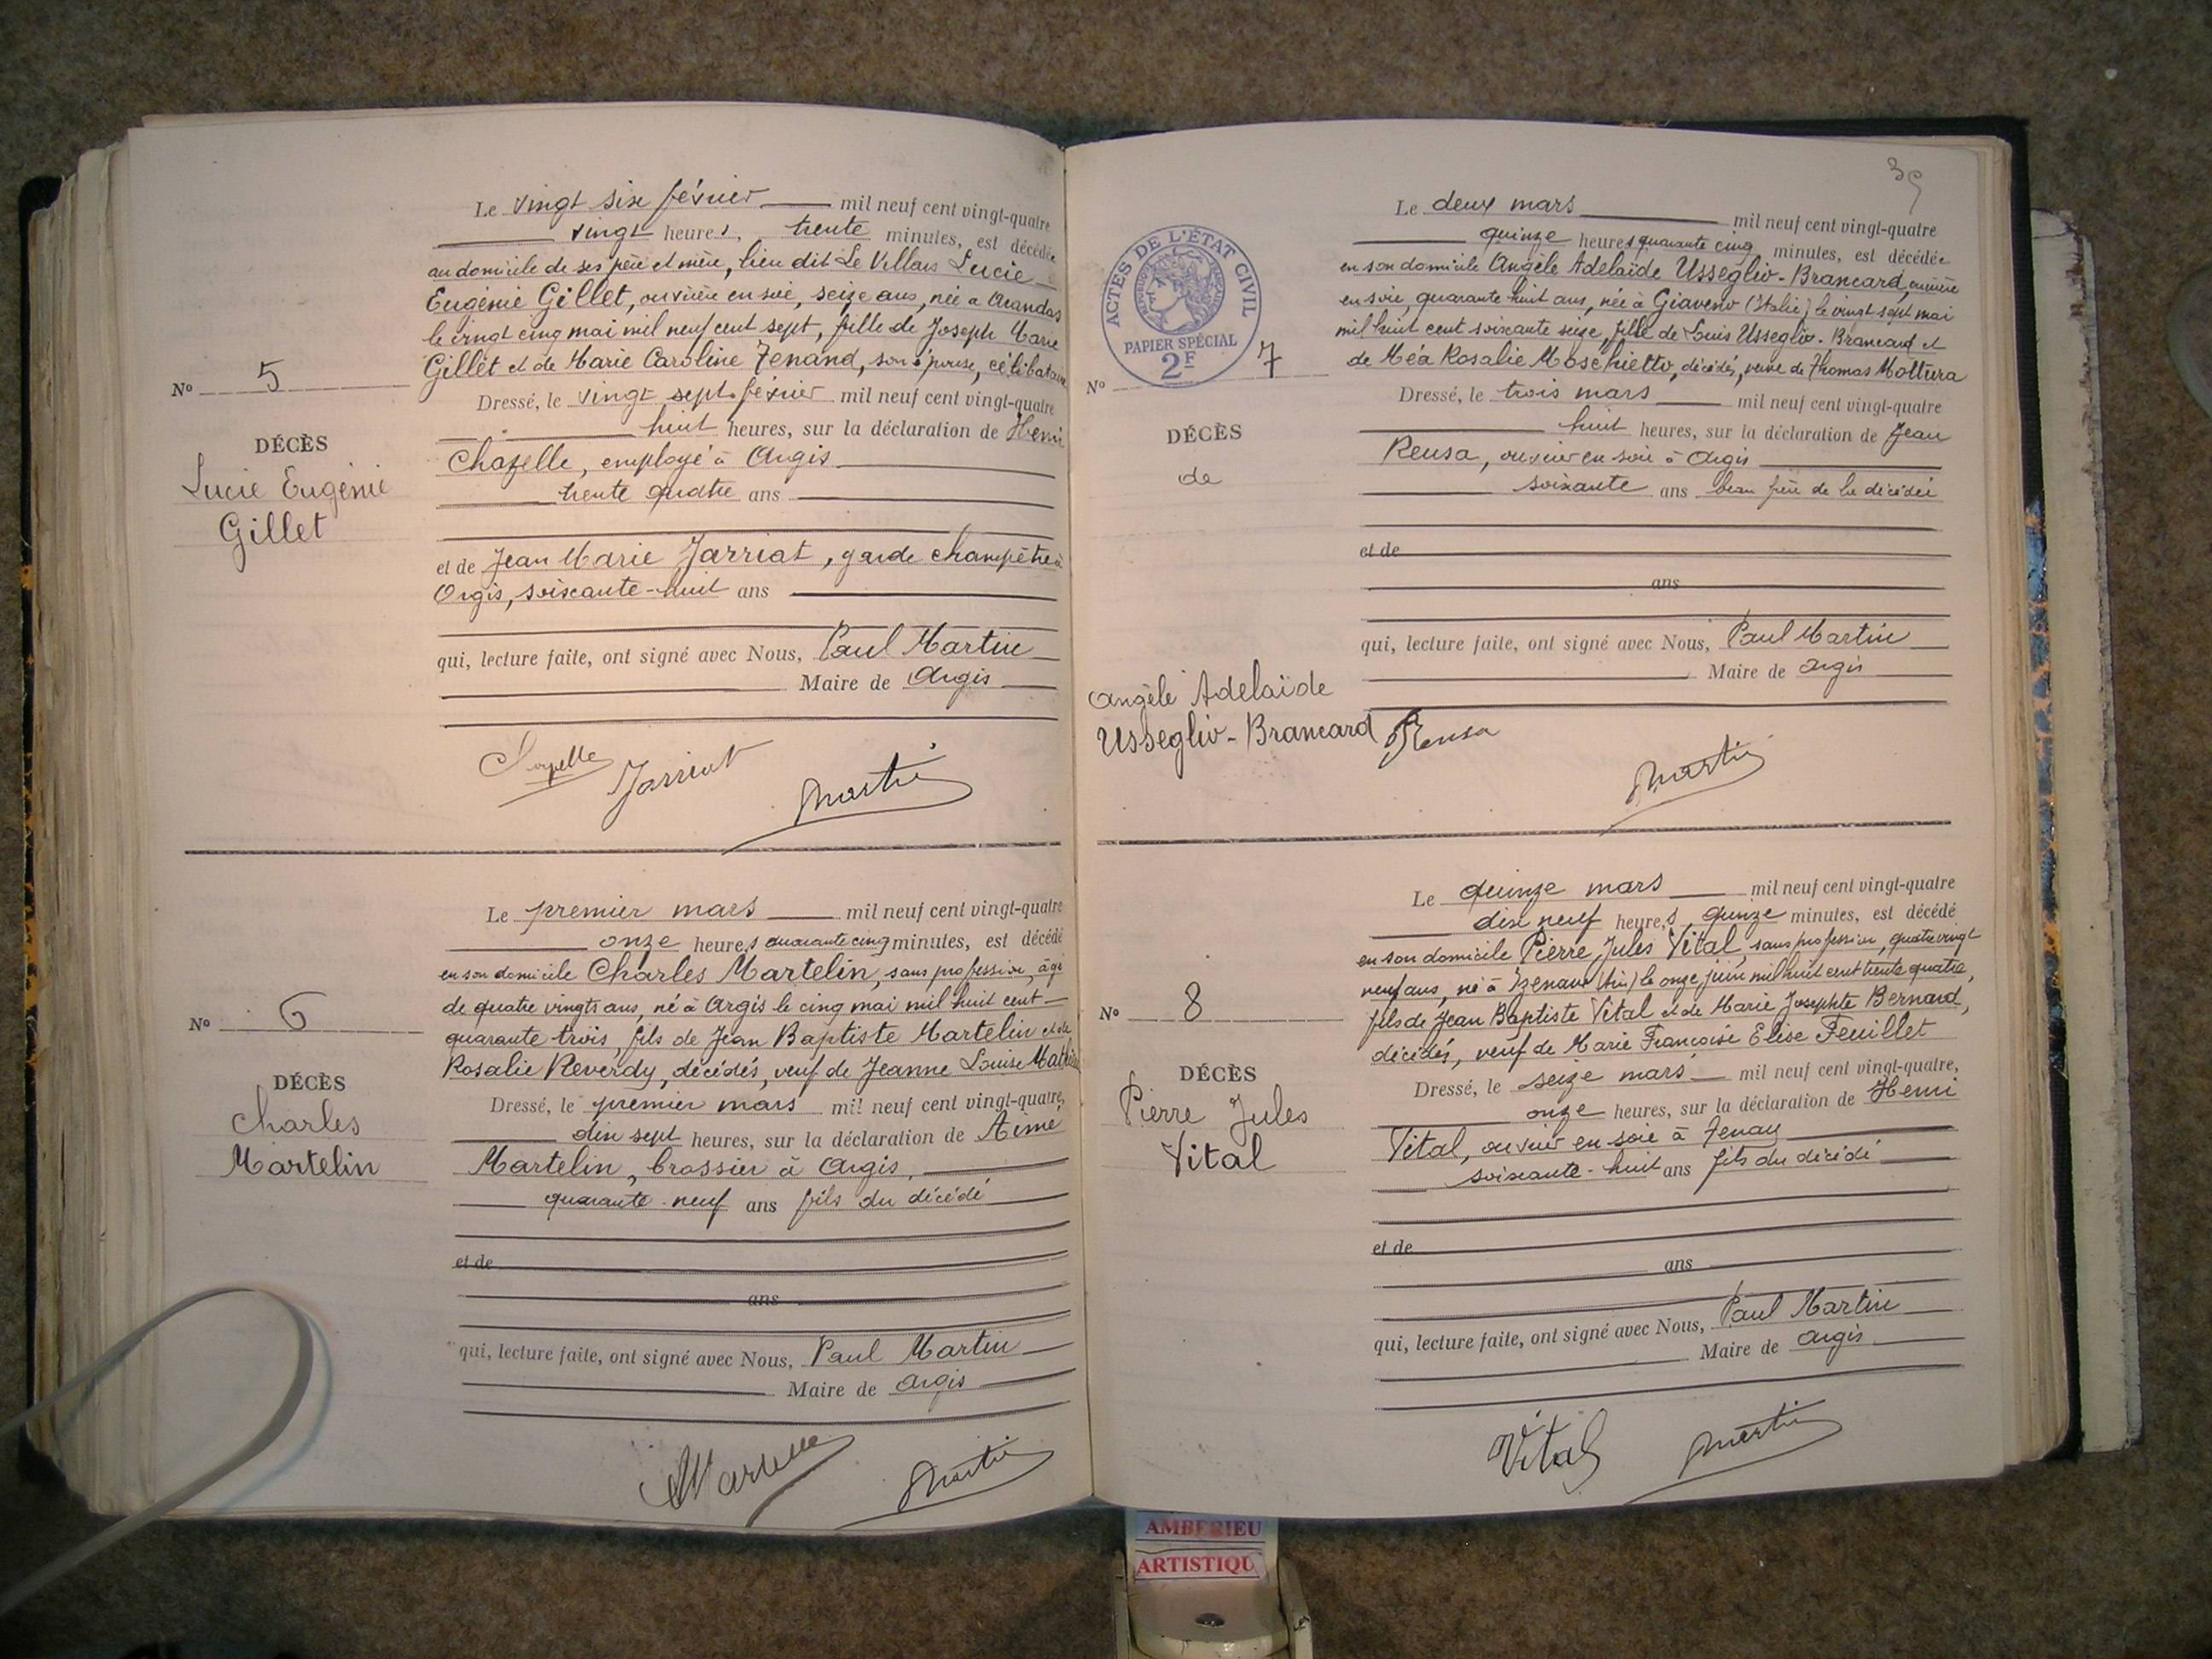 Le vingt six février mil neuf cent vingt-quatre
vingt heures, trente minutes, est décédée
au domicile de ses père et mère, lieu dit Le Villars Lucie
Eugénie Gillet, ouvrière en soie, seize ans, née a Arandas
le vingt cinq mai mil neuf cent sept, fille de Joseph Marie
Gillet et de Marie Caroline Tenand, son épouse, célibataire
No 5
Dressé, le vingt sept février mil neuf cent vingt-quatre
huit heures, sur la déclaration de Henri
DÉCÈS
Chazelle, employé à Argis
Lucie Eugénie
trente quatre ans
Gillet
et de Jean Marie Jarriat, garde champêtre à
Argis, soixante-huit ans
qui, lecture faite, ont signé avec Nous, Paul Martin
Maire de Argis
Jarriat
Martin
Le premier mars mil neuf cent vingt-quatre
onze heures quarante cinq minutes, est décédé
en son domicile Charles Martelin, sans profession, âgé
de quatre vingts ans, né à Argis le cinq mai mil huit cent
No 6
quarante trois, fils de Jean Baptiste Martelin et de
Rosalie Reverdy, décédés, veuf de Jeanne Louise
DÉCÈS
Dressé, le premier mars mil neuf cent vingt-quatre,
Charles
dix sept heures, sur la déclaration de Aimé
Martelin
Martelin, brossier à Argis,
quarante-neuf ans fils du décédé
et de
ans
qui, lecture faite, ont signé avec Nous, Paul Martin
Maire de Argis
Martin
39
Le deux mars mil neuf cent vingt-quatre
quinze heures quarante cinq minutes, est décédée
en son domicile Angèle Adelaïde Usseglio-Brancard, ouvrière
en soie, quarante huit ans, née à Giaveno (Italie) le vingt sept mai
mil huit cent soixante seize, fille de Louis Usseglio-Brancard et
de Méa Rosalie Moschietto, décédés, veuve de Thomas Mottura
ACTES DE L'ÉTAT CIVIL
RÉPUBLIQUE FRANÇAISE
PAPIER SPÉCIAL
2F
No 7
Dressé, le trois mars mil neuf cent vingt-quatre
DÉCÈS
huit heures, sur la déclaration de Jean
de
Reusa, ouvrier en soie à Argis
soixante ans beau père de la décédée
et de
ans
qui, lecture faite, ont signé avec Nous, Paul Martin
Maire de Argis
Angèle Adelaïde
Usseglio-Brancard
Reusa
Martin
Le quinze mars mil neuf cent vingt-quatre
dix neuf heures, quinze minutes, est décédé
en son domicile Pierre Jules Vital, sans profession, quatre vingt
neuf ans, né à Izenave (Ain) le onze juin mil huit cent trente quatre,
No 8
fils de Jean Baptiste Vital et de Marie Josephte Bernard,
décédés, veuf de Marie Françoise Elise Feuillet
DÉCÈS
Dressé, le seize mars mil neuf cent vingt-quatre,
Pierre Jules
onze heures, sur la déclaration de Henri
Vital
Vital, ouvrier en soie à Tenay
soixante-huit ans fils du décédé
et de
ans
qui, lecture faite, ont signé avec Nous, Paul Martin
Maire de Argis
Vital
Martin
AMBERIEU
ARTISTIQU